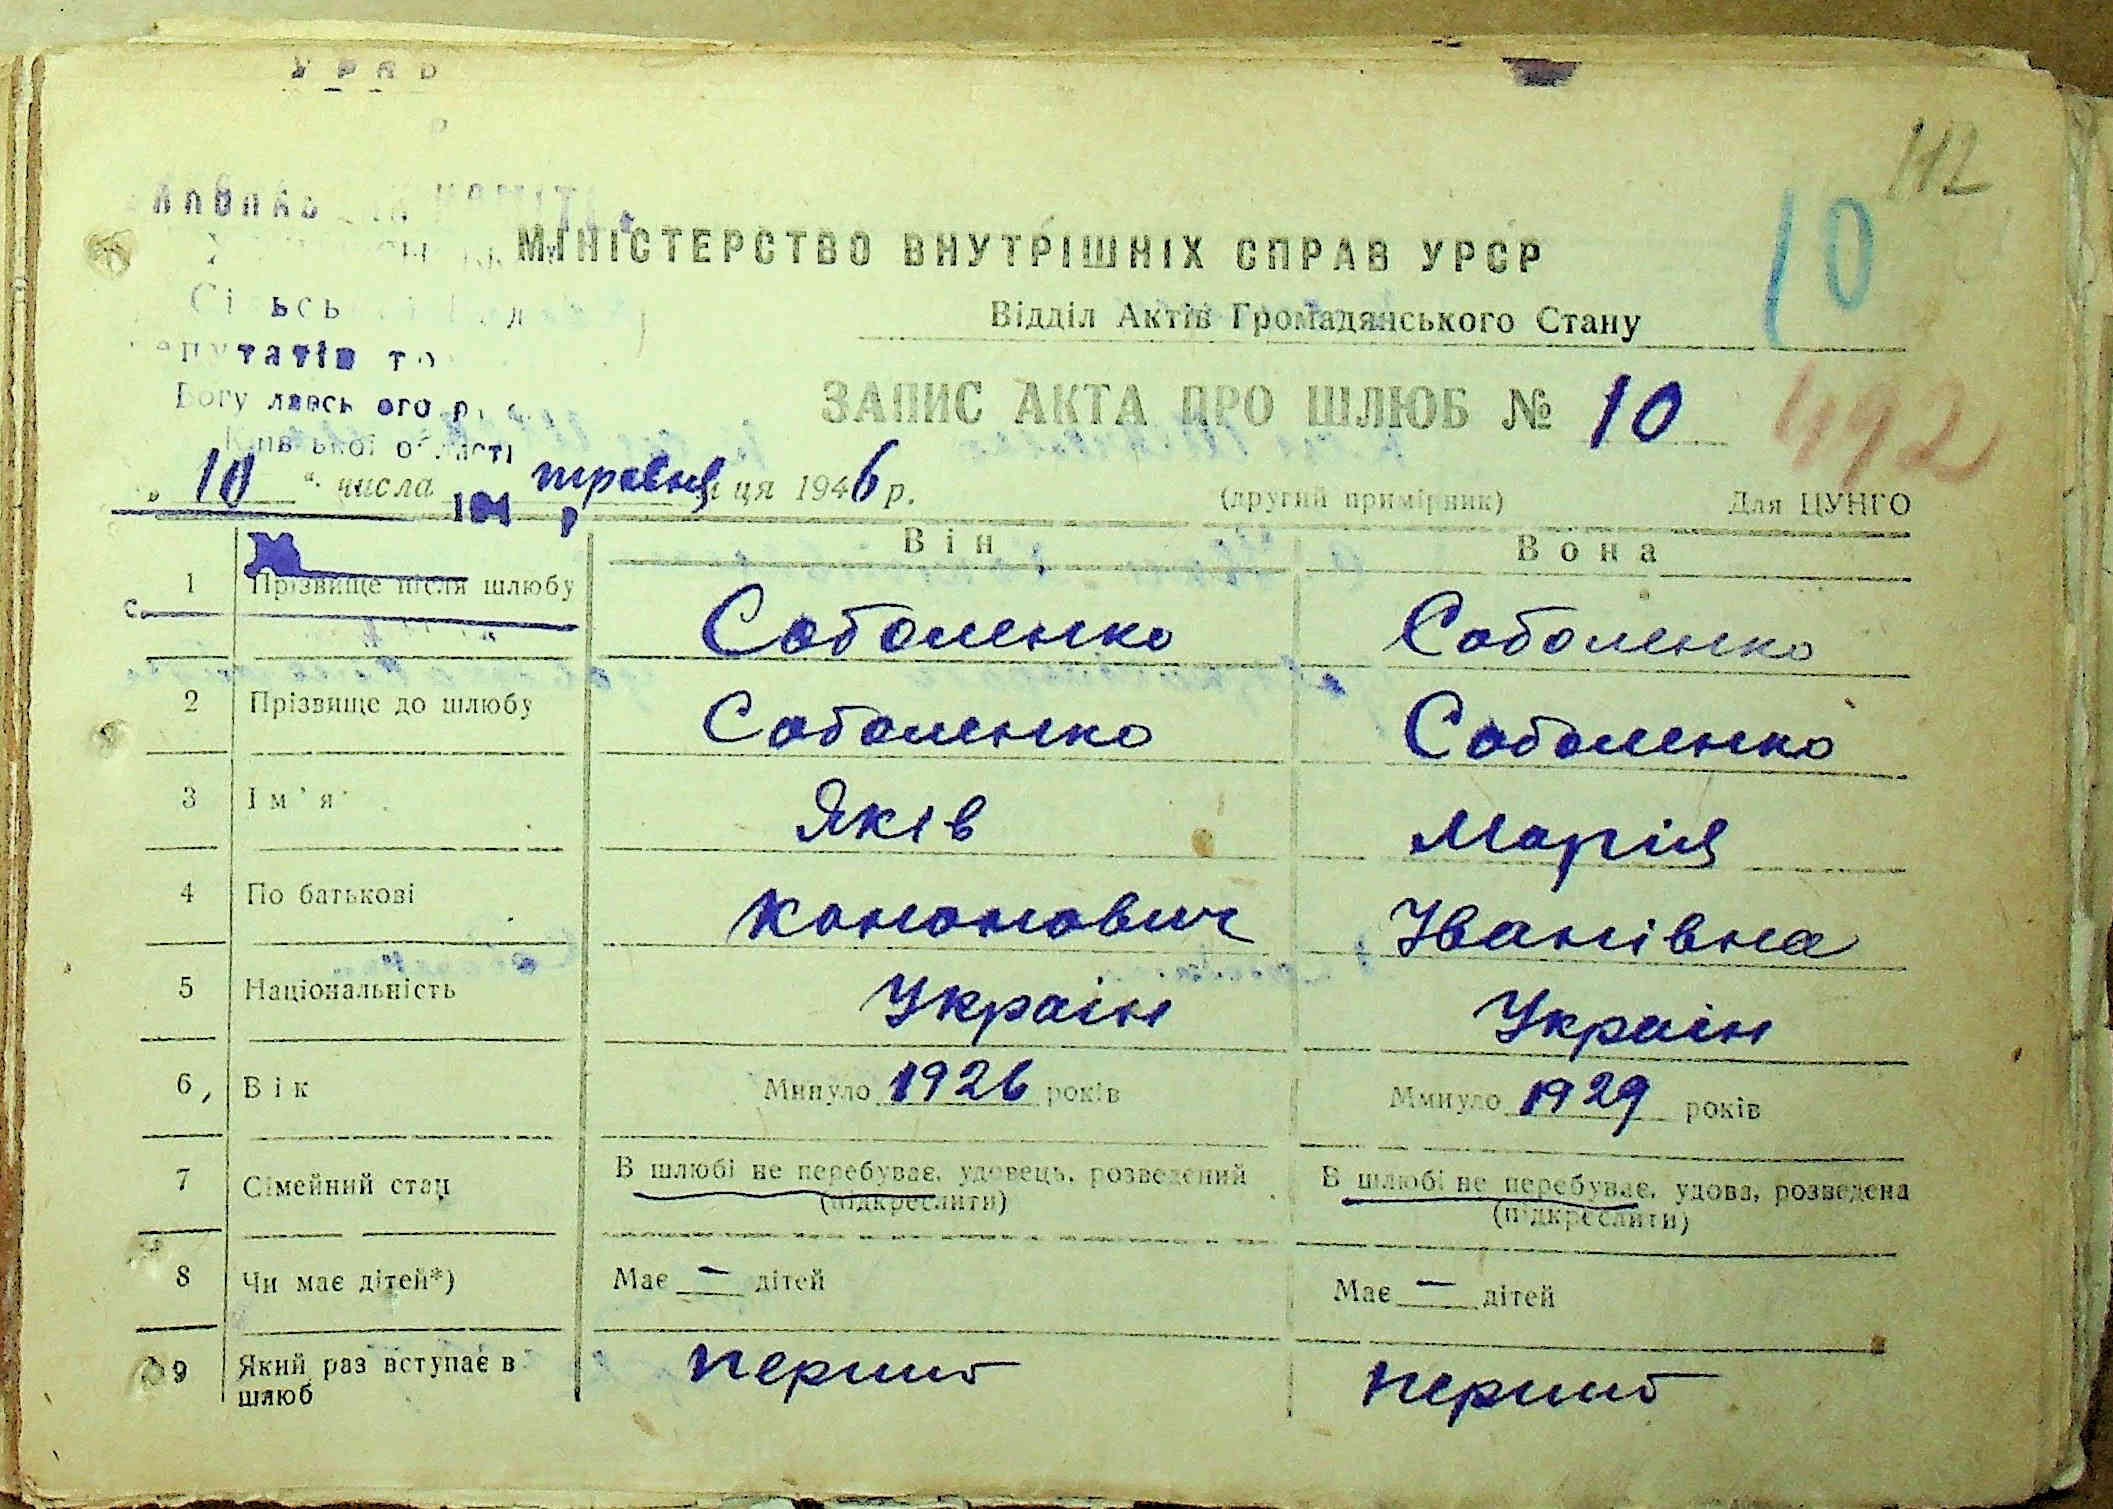 УРСР
112
10
МІНІСТЕРСТВО ВНУТРІШНІХ СПРАВ УРСР
Відділ Актів Громадянського Стану
ЗАПИС АКТА ПРО ШЛЮБ № 10
492
„ 10 “ числа травня ця 1946 р.
(другий примірник) Для ЦУНГО
Він Вона
1 Прізвище після шлюбу Соболенко Соболенко
2 Прізвище до шлюбу Соболенко Соболенко
3 Ім'я Яків Марія
4 По батькові Кононович Іванівна
5 Національність Україн Україн
6 Вік Минуло 1926 років Минуло 1929 років
7 Сімейний стан В шлюбі не перебуває, удовець, розведений В шлюбі не перебуває, удова, розведена
(підкреслити) (підкреслити)
8 Чи має дітей*) Має — дітей Має — дітей
9 Який раз вступає в шлюб перший перший